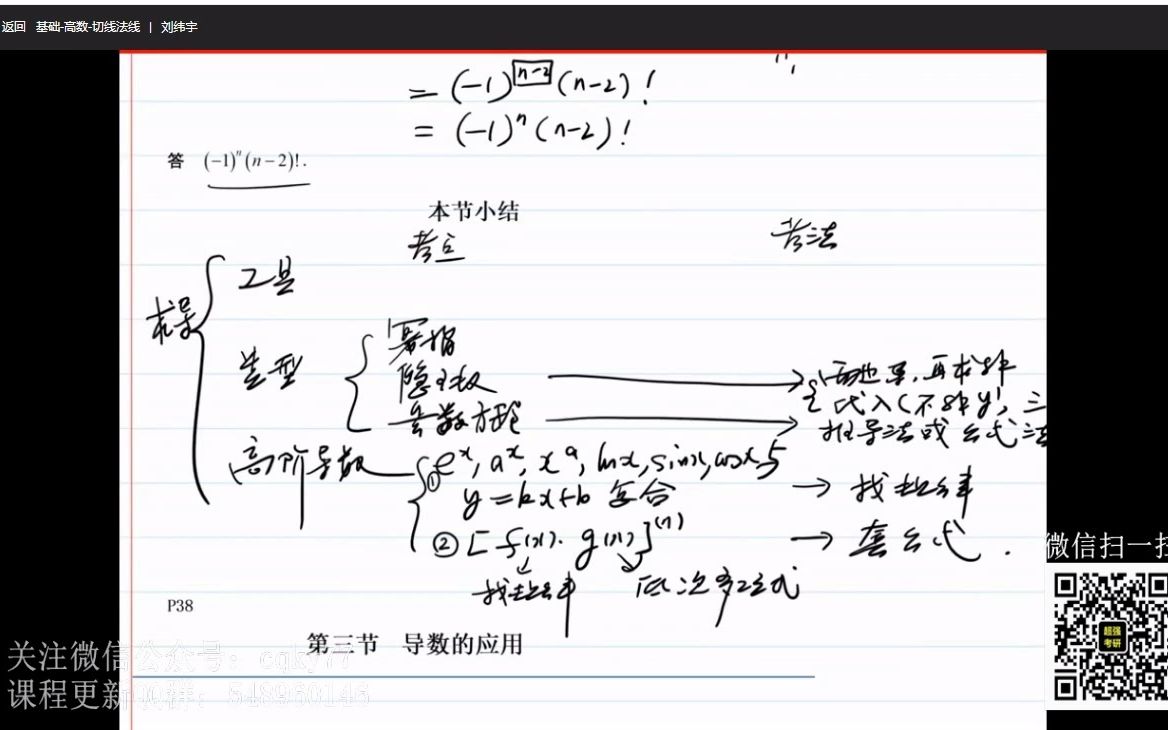 返回 基础-高数-切线法线 | 刘纬宇
= (-1)^{n-2} (n-2)!
= (-1)^n (n-2)!
答 (-1)^n (n-2)!.
本节小结
考点 考法
求导
工具
类型
幂指
隐函数 → 两边导,再求导
代入(不解y'
参数方程 → 推导法或公式法
高阶导数 ① e^x, a^x, x^a, lnx, sinx, cosx, 与
y=kx+b 复合 → 找规律
② [f(x)·g(x)]^(n) → 套公式.
找规律 低次多项式
微信扫一扫
超强
考研
P38
第三节 导数的应用
关注微信公众号: cqky77
课程更新